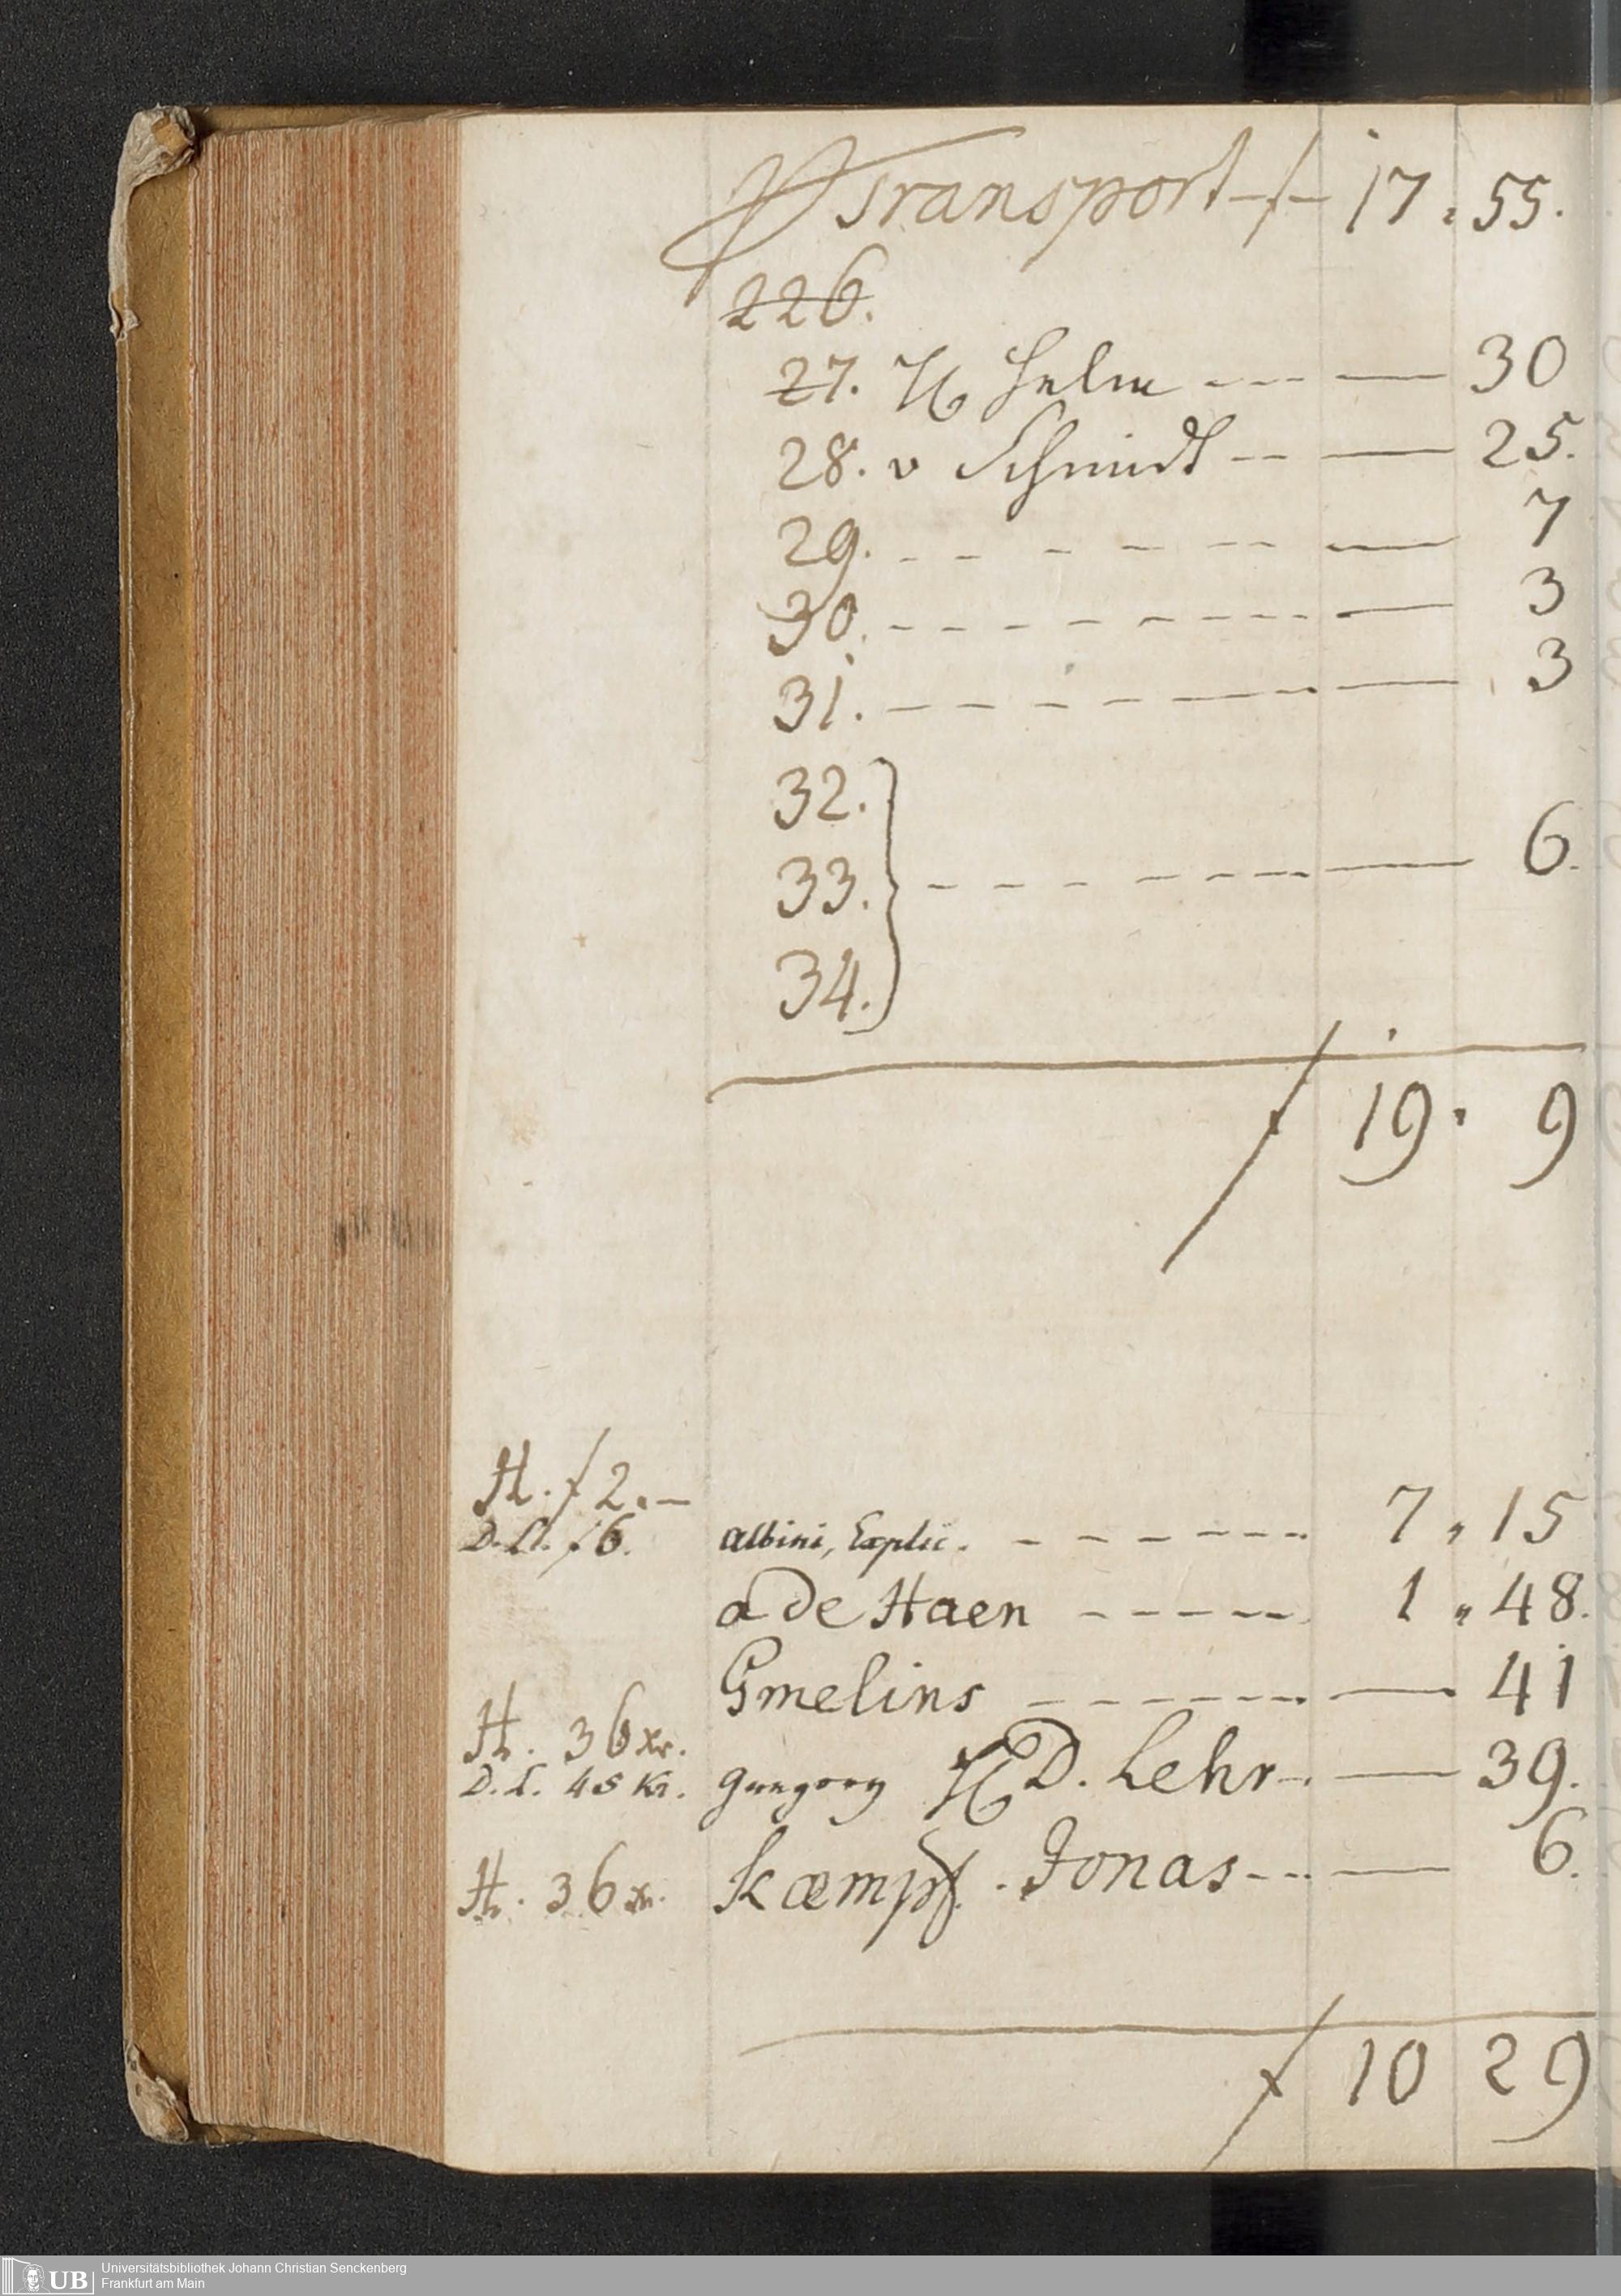 Transport f 17. 55.
226.
27. H Helm --- — 30
28. v Schmidt -- — 25.
29. - - - - - — 7
30. - - - - - - — 3
31. - - - - - — 3
32.
33. - - - - - — 6.
34.
f 19. 9
H. f 2.—
D. L. f 6. Albini, Explic. - - - - - 7 " 15
a De Haen - - - - - 1 " 48.
Gmelins - - - - - — 41
H. 36 xr.
D. L. 45 Kr. H D. Lehr - — 39.
H. 36 xr. Kæmpf. Jonas --- — 6.
f 10 29
UB Universitätsbibliothek Johann Christian Senckenberg
Frankfurt am Main